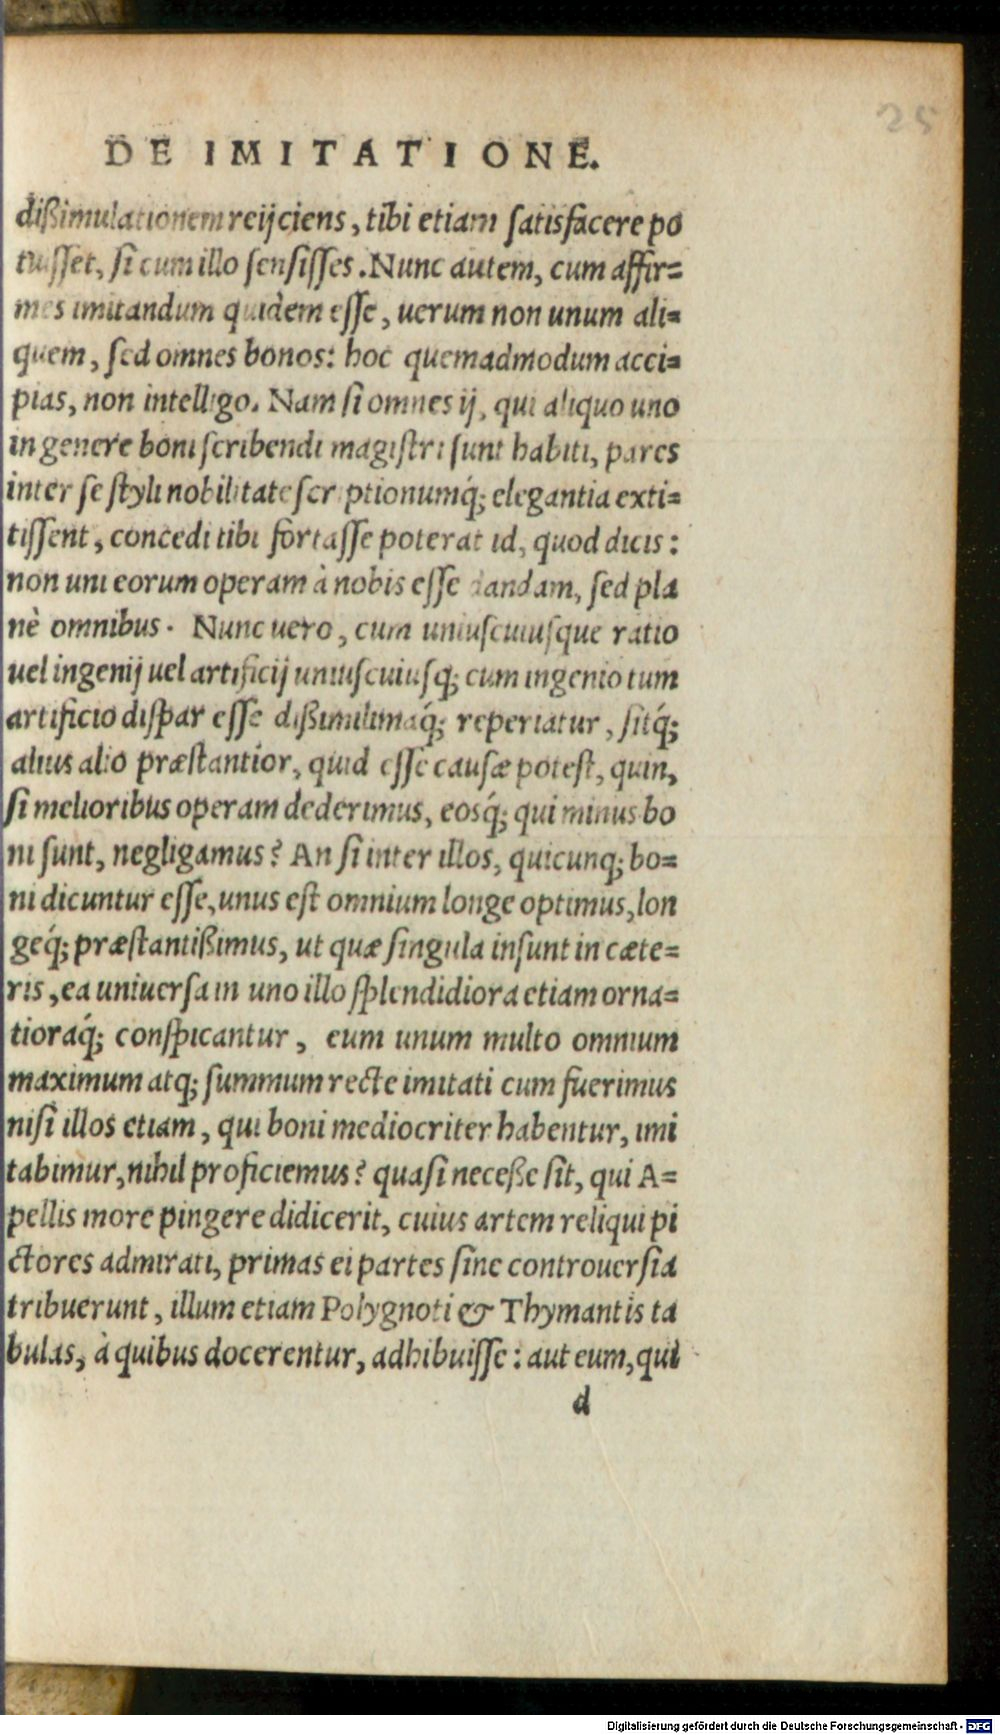 25
DE IMITATIONE.
dißimulationem reijciens, tibi etiam satisfacere po
tuisset, si cum illo sensisses. Nunc autem, cum affir=
mes imitandum quidem esse, uerum non unum ali=
quem, sed omnes bonos: hoc quemadmodum acci=
pias, non intelligo. Nam si omnes ij, qui aliquo uno
in genere boni scribendi magistri sunt habiti, pares
inter se styli nobilitate scriptionumq́; elegantia exti=
tissent, concedi tibi fortasse poterat id, quod dicis:
non uni eorum operam à nobis esse dandam, sed pla
nè omnibus. Nunc uero, cum uniuscuiusque ratio
uel ingenij uel artificij uniuscuiusq; cum ingenio tum
artificio dispar esse dißimilimaq́; reperiatur, sitq́;
alius alio præstantior, quid esse causæ potest, quin,
si melioribus operam dederimus, eosq́; qui minus bo
ni sunt, negligamus? An si inter illos, quicunq; bo=
ni dicuntur esse, unus est omnium longe optimus, lon
geq́; præstantißimus, ut quæ singula insunt in cæte=
ris, ea uniuersa in uno illo splendidiora etiam orna=
tioraq́; conspicantur, eum unum multo omnium
maximum atq; summum recte imitati cum fuerimus
nisi illos etiam, qui boni mediocriter habentur, imi
tabimur, nihil proficiemus? quasi neceße sit, qui A=
pellis more pingere didicerit, cuius artem reliqui pi
ctores admirati, primas ei partes sine controuersia
tribuerunt, illum etiam Polygnoti & Thymantis ta
bulas, à quibus docerentur, adhibuisse: aut eum, qui
d
Digitalisierung gefördert durch die Deutsche Forschungsgemeinschaft - DFG